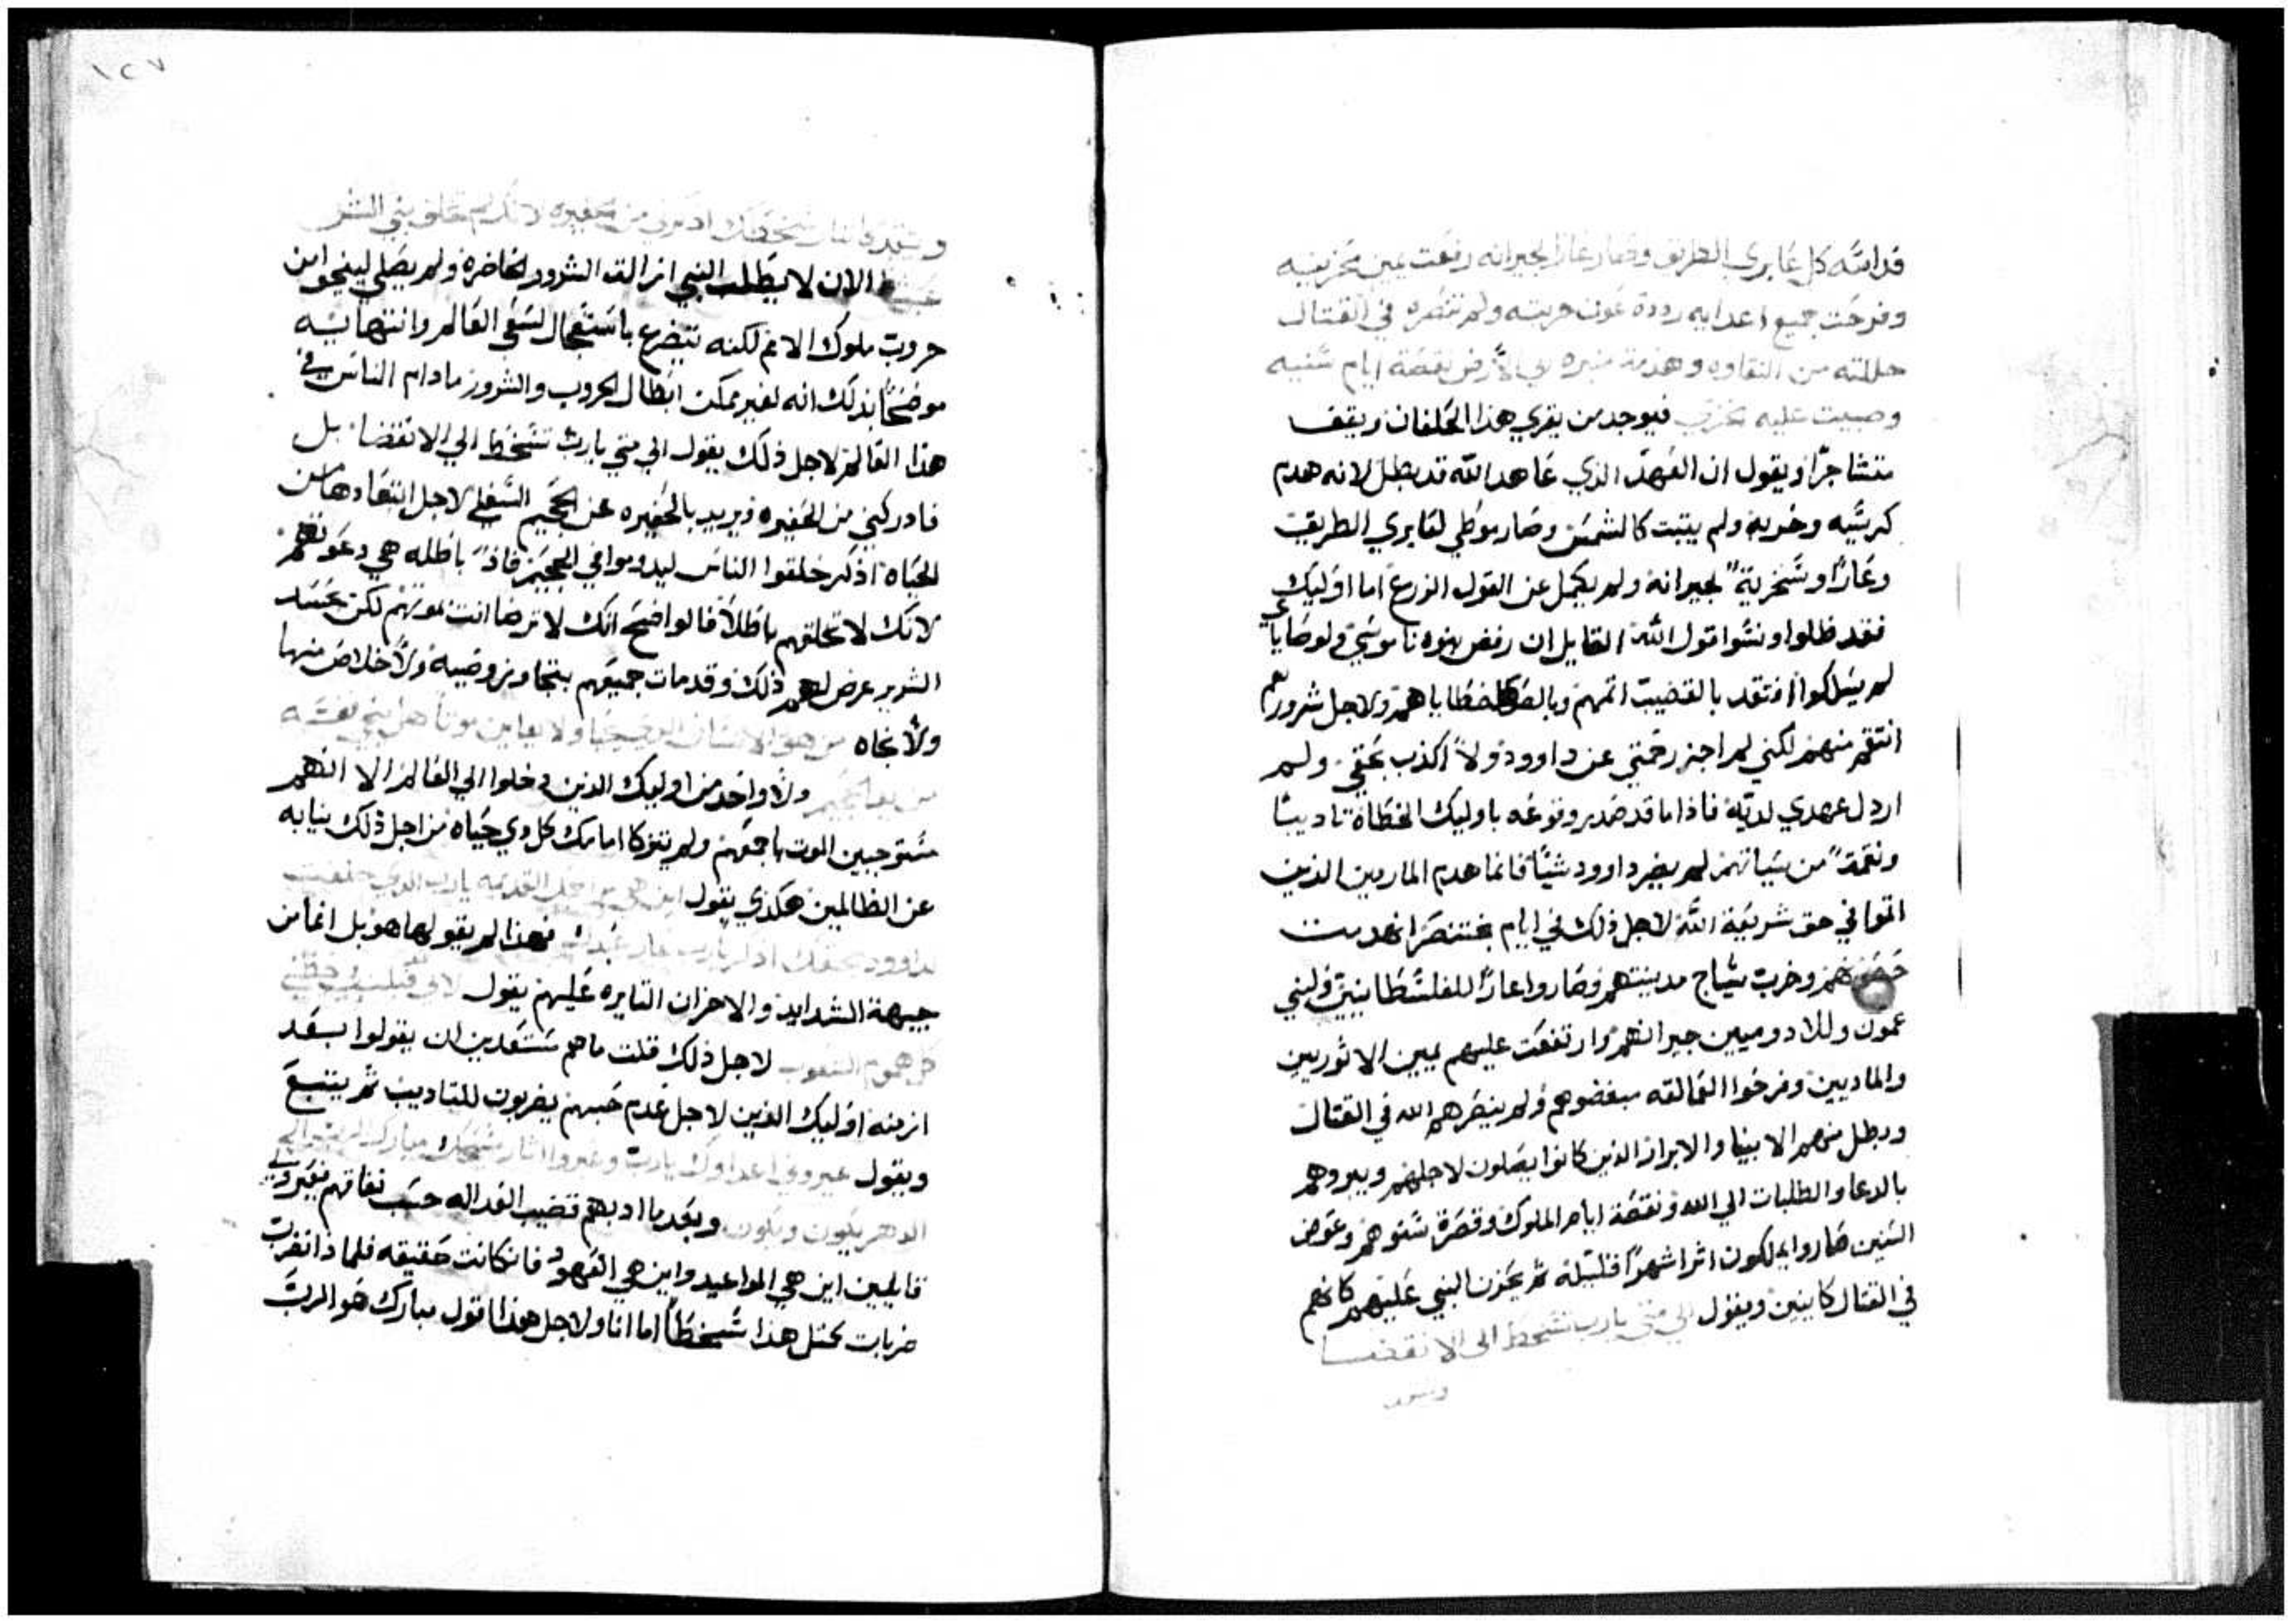 فداسته كل عابري الطريق وصار عارا لجيرانه رفعت يمين محزنيه
وفرحت جميع اعدايه رددة عون حربته ولم تنصره في القتال
حللته من النقاوه وهدمة منبره الي الارض نقصة ايام سنيه
وصببت عليه الخزي فيوجد من يقري هذا الخلفان ويقف
متشاجرا ويقول ان العهد الذي عاهد الله قد بطل لانه هدم
كرسيه وخربه ولم يثبت كالشمس وصار موطي لعابري الطريق
وعارا وسخرية لجيرانه ولم يكمل عن القول الزرع اما اوليك
فقد ظلوا ونسوا قول الله القايل ان رفض بنوه ناموسي ولوصاياي
لم يسلكوا افتقد بالقضيب اثمهم وبالضرب خطاياهم ولاجل شرورهم
انتقم منهم لكني لم اجز رحمتي عن داوود ولا اكذب بحقي ولم
اردل عهدي لديه فاذا ما قد صدر وقوعه باوليك الخطاة تاديبا
ونقمة من سياتهم لم يضر داوود شيا فانما هدم الماردين الذين
اثموا في حق شريعة الله لاجل ذلك في ايام بختنصر انهدمت
حصونهم وخرب سياج مدينتهم وصاروا عارا للفلسطانيين ولبني
عمون وللادوميين جيرانهم وارتفعت عليهم يمين الاثوريين
والماديين وفرحوا العمالقه مبغضوهم ولم ينصرهم الله في القتال
وبطل منهم الانبيا والابرار الذين كانوا يصلون لاجلهم ويبروهم
بالدعا والطلبات الي الله ونقصة ايام الملوك وقصرة سنوهم وعوض
السنين صاروا يملكون اثرا شهرا قليلة ثم يحزن النبي عليهم كانهم
في القتال كاينين ويقول الي متي يارب تسخط الي الانقضا
وتتقد
١٢٧
وتتقد كالنار سخطك اذكرني من الحفيره لانك لم تخلق بني البشر
عبثا الان لا يطلب النبي ازالة الشرور الحاضره ولم يصلي لينجوا من
حروب ملوك الامم لكنه يتضرع باستعجال لسعي العالم وانتهايه
موضحا بذلك انه لغير ممكن ابطال الحروب والشرور ما دام الناس في
هذا العالم لاجل ذلك يقول الي متي يارب تسخط الي الانقضا بل
فادركني من الحفيره ويريد بالحفيره عن الجحيم السفلي لاجل ابتعادها من
الحياه اذكر خلقوا الناس ليدوموا في الجحيم فاذا باطله هي دعوتهم
لانك لا تخلقهم باطلا فالواضح انك لا ترضا انت بموتهم لكن بحسد
الشرير عرض لهم ذلك وقد مات جميعهم بتجاوز وصيه ولا خلاص منها
ولا نجاه من هو الانسان الذي يحيا ولا يعاين موتا هل ينجي نفسه
من يد الجحيم ولا واحد من اوليك الذين دخلوا الي العالم الا انهم
مستوجبين الموت باجمعهم ولم يتزكا امامك كل ذي حياه من اجل ذلك بنيابه
عن الظالمين هكذي يقول اين هي مراحمك القديمه يارب الذي حلفت
لداوود بحقك اذكر يارب عار عبيدك فهذا لم يقولها هو بل انما من
جيهة الشدايد والاحزان الثايره عليهم يقول لاني قبلت في حضني
كل هموم الشعوب لاجل ذلك قلت ما هم مستعدين ان يقولوا بعد
ازمنه اوليك الذين لاجل عدم حبهم يضربون للتاديب ثم يتبع
ويقول عيروني اعداوك يارب وعيروا اثار مسيحك مبارك الرب الي
الدهر يكون ويكون وبعد ما ادبهم قضيب العداله حسب نفاقهم فغيروني
قايلين اين هي المواعيد واين هي العهود فان كانت حقيقه فلماذا تضرب
ضربات كمثل هذا سخطا اما انا ولاجل هذا اقول مبارك هو الرب